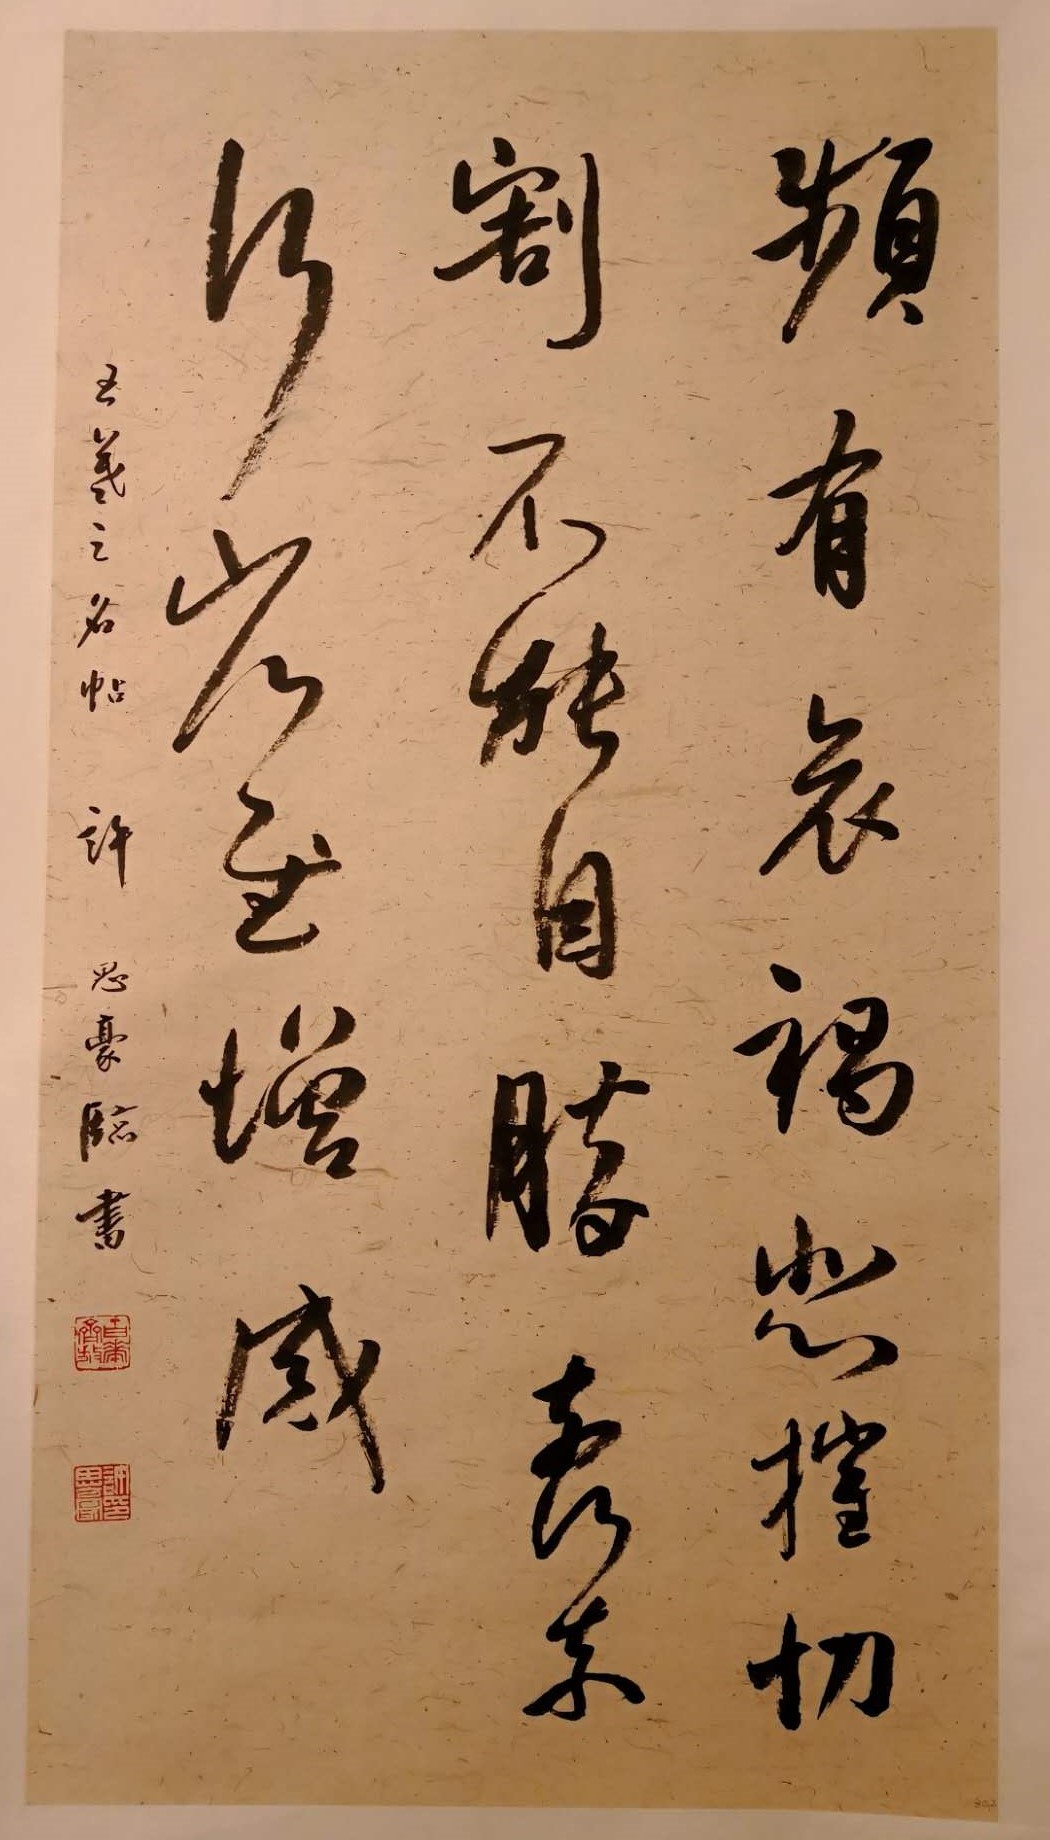 頻有哀禍悲摧切
割不能自勝奈何奈
何省慰增感
王羲之名帖 許思豪臨書